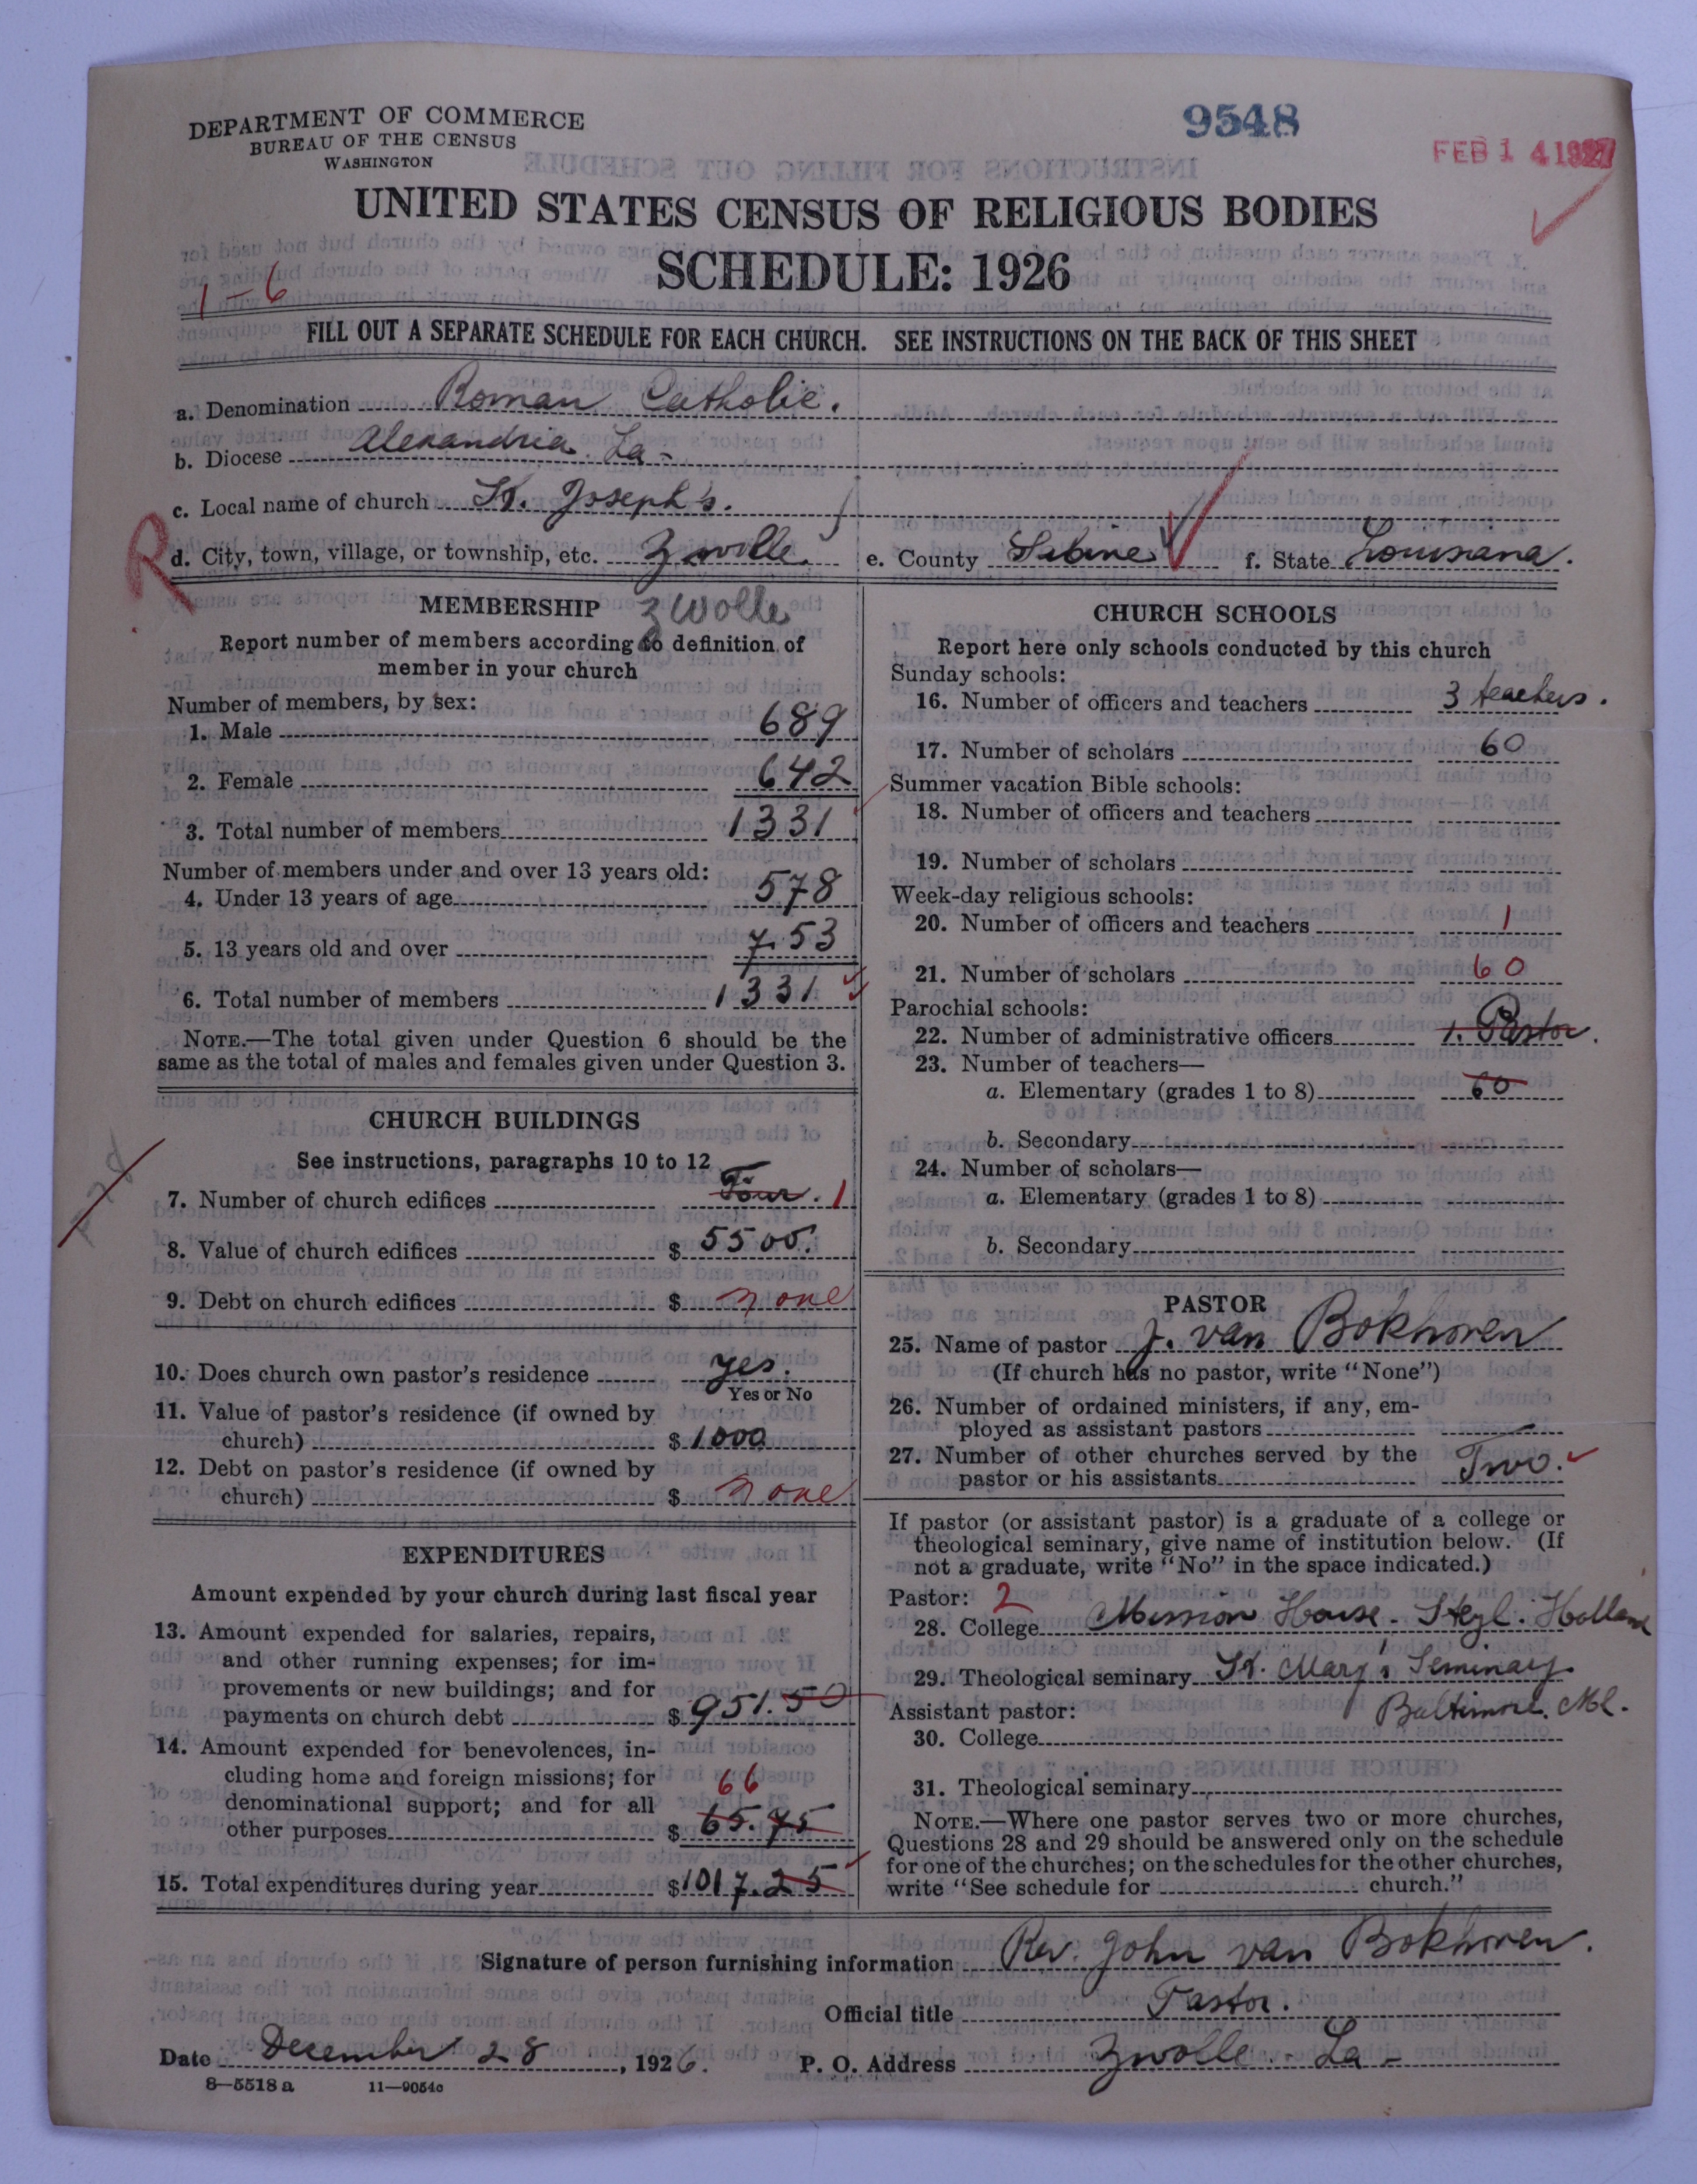 DEPARTMENT OF COMMERCE
BUREAU OF THE CENSUS
WASHINGTON
9548
FEB 14 1927
UNITED STATES CENSUS OF RELIGIOUS BODIES
SCHEDULE: 1926
1-6
FILL OUT A SEPARATE SCHEDULE FOR EACH CHURCH. SEE INSTRUCTIONS ON THE BACK OF THIS SHEET
a. Denomination Roman Catholic.
b. Diocese Alexandria La-
c. Local name of church St. Joseph's.
R
d. City, town, village, or township, etc. Zwolle. e. County Sabine f. State Louisiana.
MEMBERSHIP Zwolle
Report number of members according to definition of
member in your church
Number of members, by sex:
1. Male 689
2. Female 642
3. Total number of members 1331
Number of members under and over 13 years old:
4. Under 13 years of age 578
5. 13 years old and over 753
6. Total number of members 1331
NOTE.—The total given under Question 6 should be the
same as the total of males and females given under Question 3.
CHURCH BUILDINGS
See instructions, paragraphs 10 to 12
7. Number of church edifices Four. 1
8. Value of church edifices $ 5500.
9. Debt on church edifices $ none
10. Does church own pastor's residence yes.
Yes or No
11. Value of pastor's residence (if owned by
church) $ 1000
12. Debt on pastor's residence (if owned by
church) $ none
EXPENDITURES
Amount expended by your church during last fiscal year
13. Amount expended for salaries, repairs,
and other running expenses; for im-
provements or new buildings; and for
payments on church debt $ 951.50
14. Amount expended for benevolences, in-
cluding home and foreign missions; for 66
denominational support; and for all
other purposes $ 65.75
15. Total expenditures during year $ 1017.25
CHURCH SCHOOLS
Report here only schools conducted by this church
Sunday schools:
16. Number of officers and teachers 3 teachers.
17. Number of scholars 60
Summer vacation Bible schools:
18. Number of officers and teachers
19. Number of scholars
Week-day religious schools:
20. Number of officers and teachers 1
21. Number of scholars 60
Parochial schools:
22. Number of administrative officers 1. Pastor.
23. Number of teachers—
a. Elementary (grades 1 to 8) 60
b. Secondary
24. Number of scholars—
a. Elementary (grades 1 to 8)
b. Secondary
PASTOR
25. Name of pastor J. van Bokhoven
(If church has no pastor, write "None")
26. Number of ordained ministers, if any, em-
ployed as assistant pastors —
27. Number of other churches served by the
pastor or his assistants Two.
If pastor (or assistant pastor) is a graduate of a college or
theological seminary, give name of institution below. (If
not a graduate, write "No" in the space indicated.)
Pastor: 2
28. College Mission House - Steyl. Holland
29. Theological seminary St. Mary's Seminary
Assistant pastor: Baltimore. Md.
30. College
31. Theological seminary
NOTE.—Where one pastor serves two or more churches,
Questions 28 and 29 should be answered only on the schedule
for one of the churches; on the schedules for the other churches,
write "See schedule for church."
Signature of person furnishing information Rev. John van Bokhoven.
Official title Pastor.
Date December 28, 1926. P. O. Address Zwolle - La-
8—5518 a 11—9054c